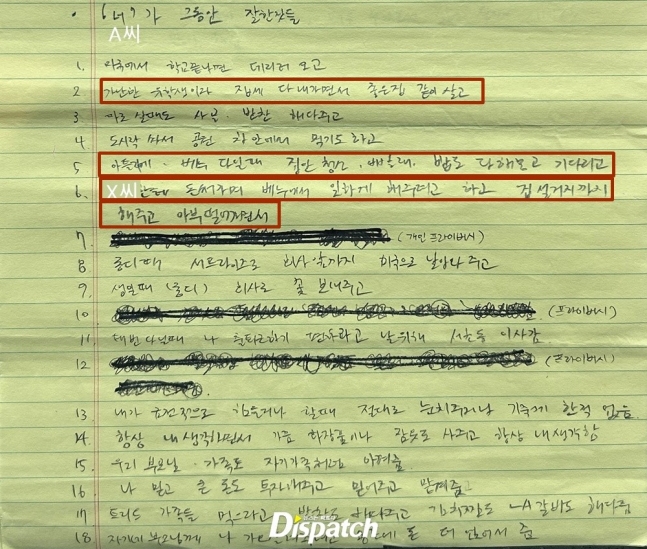 · 가 그동안 잘한것들
A씨
1. 미국에서 학교끝나면 데리러 오고
2 가난한 유학생이라 집세 다 내가면서 좋은집 같이 살고
3 따로 살때도 반찬 해다주고
4 도시락 싸서 공원 차 안에서 먹기도 하고
5 다닐때 집안 청소, 빨래, 밥도 다해놓고 기다리고
6. X씨 돈써가며 에서 일하게 해주려고 하고 집 설거지까지
해주고 아부 떨어가면서
7 (개인 프라이버시)
8 롱디때 서프라이즈로 회사앞까지 미국으로 날아와 주고
9 생일때 (롱디) 회사로 꽃 보내주고
10 (프라이버시)
11 대번 다닐때 나 출퇴근하기 편하라고 날위해 서초동 이사감
12 (프라이버시)
13 내가 금전적으로 힘들거나 할때 절대로 눈치주거나 기죽게 한적 없음
14 항상 내 생각하면서 가끔 화장품이나 사주고 항상 내 생각함
15 우리 부모님 · 가족도 자기가족처럼 아껴줌
16 나 믿고 큰 돈도 투자해주고 믿어주고 맡겨줌
17 가족들 먹으라고 해다주고 김치찜도 LA갈비도 해다줌
18 자기네 부모님께 나 돈 더 얹어서 줌
Dispatch